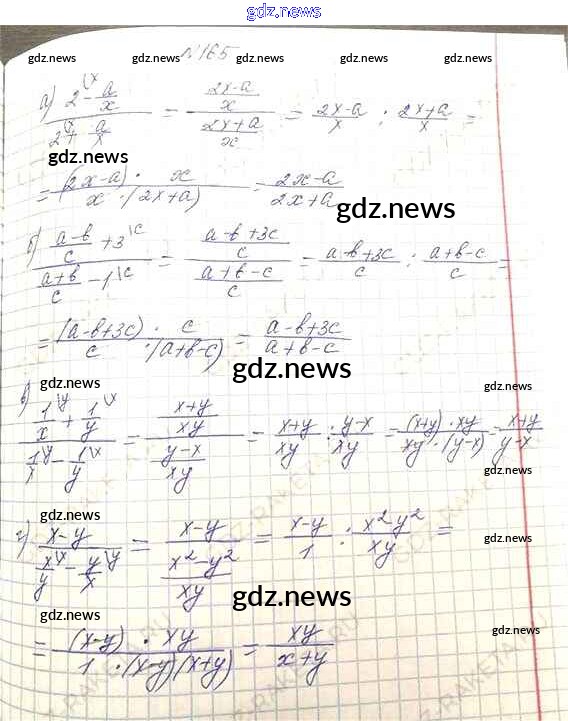 gdz.news
№165
gdz.news gdz.news gdz.news
а) (2\x - a/x)/(2\x + a/x) = ((2x-a)/x)/((2x+a)/x) = (2x-a)/x : (2x+a)/x =
gdz.news
= ((2x-a) · x)/(x · (2x+a)) = (2x-a)/(2x+a)
gdz.news
б) ((a-b)/c + 3\c)/((a+b)/c - 1\c) = ((a-b+3c)/c)/((a+b-c)/c) = (a-b+3c)/c : (a+b-c)/c =
= ((a-b+3c) · c)/(c · (a+b-c)) = (a-b+3c)/(a+b-c)
gdz.news gdz.news
gdz.news
в) (1/x\y + 1/y\x)/(1/x\y - 1/y\x) = ((x+y)/xy)/((y-x)/xy) = (x+y)/xy : (y-x)/xy = ((x+y) · xy)/(xy · (y-x)) = (x+y)/(y-x)
gdz.news gdz.news
gdz.news
г) (x-y)/(x/y\x - y/x\y) = (x-y)/((x²-y²)/xy) = (x-y)/1 : (x²-y²)/xy =
gdz.news
gdz.news gdz.news gdz.news
= ((x-y) · xy)/(1 · (x-y)(x+y)) = xy/(x+y)
gdz.news